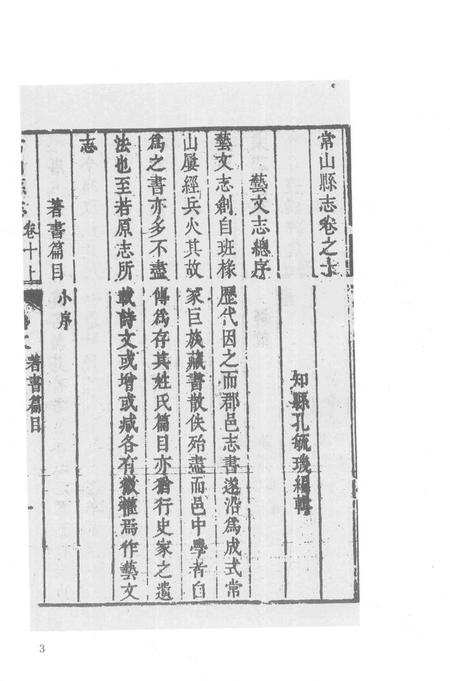 常山縣志卷之十
知縣孔毓璣編輯
藝文志總序
藝文志創自班椽歷代因之而郡邑志書遂沿爲成式常
山屢經兵火其故家巨族藏書散佚殆盡而邑中學者自
爲之書亦多不盡傳爲存其姓氏篇目亦猶行史家之遺
法也至若原志所載詩文或增或减各有微權焉作藝文
志
著書篇目 小序
卷十上
著書篇目
3